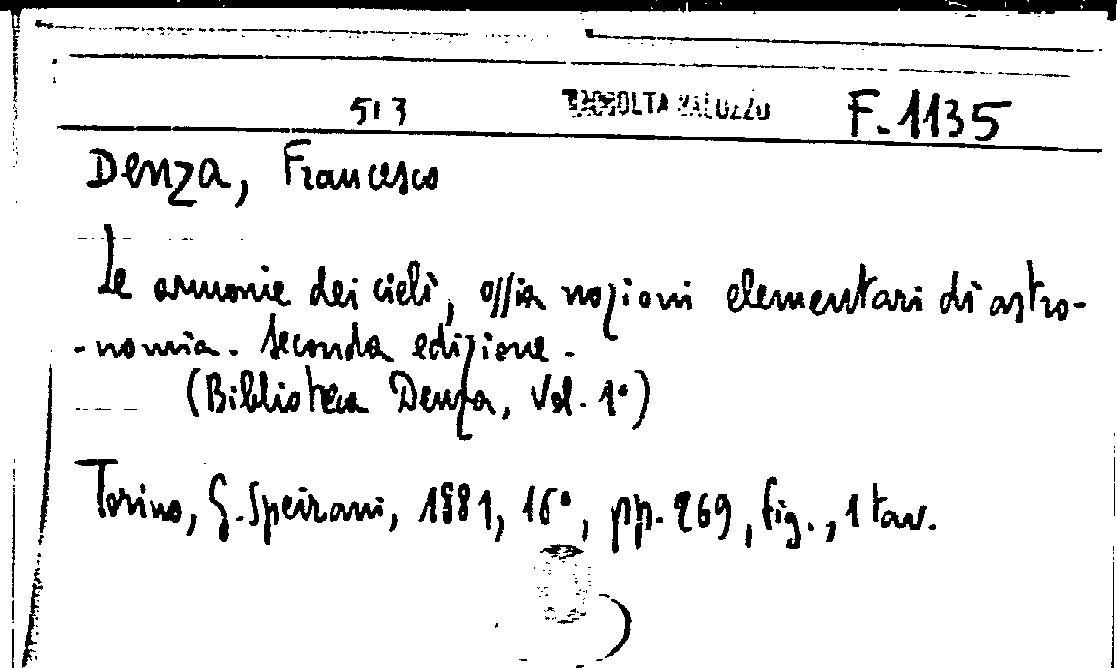 513 RACCOLTA F. 1135
Denza, Francesco
Le armonie dei cieli, ossia nozioni elementari di astro-
-nomia. Seconda edizione.
(Biblioteca Denza, Vol. 1°)
Torino, G. Speirani, 1881, 16°, pp. 269, fig., 1 tav.